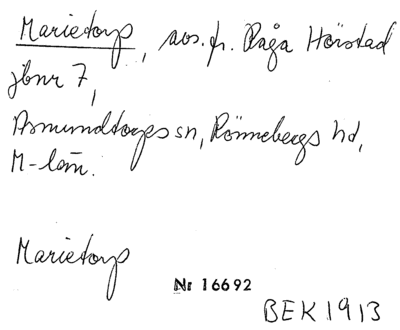 Marietorp, avs. fr. Råga Hörstad
jbnr 7,
Asmundtorps sn, Rönnebergs hd,
M-län.
Marietorp
Nr 16692
BEK 1913